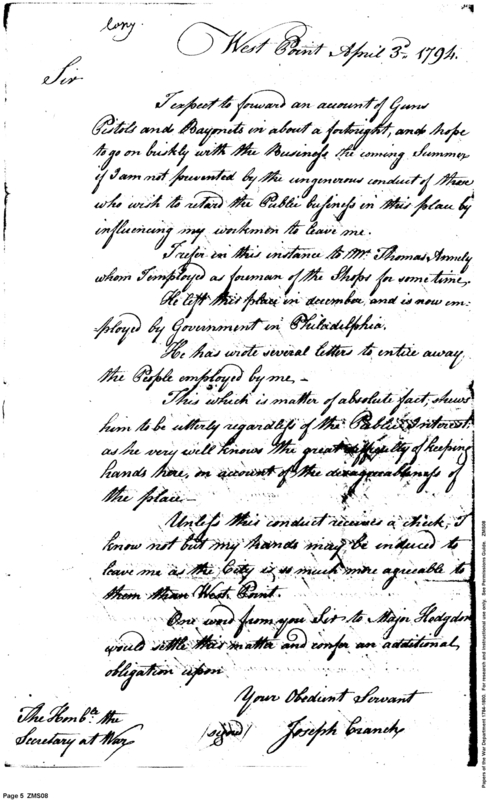 Copy.
West Point April 3d. 1794.
Sir
I expect to forward an account of Guns
Pistols and Bayonets in about a fortnight, and hope
to go on briskly with the Business the coming Summer
if I am not prevented by the ungenerous conduct of those
who wish to retard the Public business in this place by
influencing my workmen to leave me.
I refer in this instance to Mr. Thomas Annely
whom I employed as foreman of the Shops for some time,
He left this place in december, and is now em:
ployed by Government in Philadelphia.
He has wrote several letters to entice away
the People employed by me,—
This which is matter of absolute fact, shews
him to be utterly regardless of the Public Interest
as he very well knows the great difficulty of keeping
hands here, on account of the disagreeableness of
the place.—
Unless this conduct receives a check, I
know not but my hands may be induced to
leave me as the City is so much more agreeable to
them than West Point.
One word from you Sir to Major Hodgdon
would settle this matter and confer an additional
obligation upon
Your Obedient Servant
The Honble. the
Secretary at War
(signd) Joseph Cranch
Page 5 ZMS08
Papers of the War Department 1784-1800. For research and instructional use only. See Permissions Guide. ZMS08